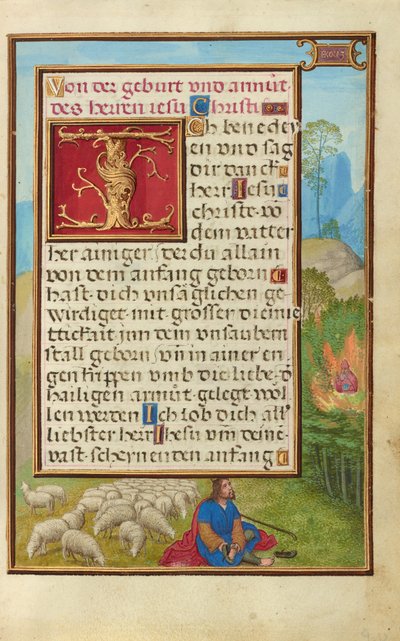 Von der geburt vnd armůt
des herren iesu Christi
Ich benedey
en vnd sag
dir danck
herr Iesu
christe vō
dem vatter
her ainiger, der du allain
von dem anfang geborn
hast dich vnsäglichen ge
wirdiget mit grosser diemie
ttickait jnn dem vnsaubern
stall geborn, vn̄ in ainer en
gen krippen vmb die liebe d̕
hailigen armůt gelegt wol
len werden Ich lob dich all'
liebster herr Ihesu vm deinē
vast scheinenden anfang